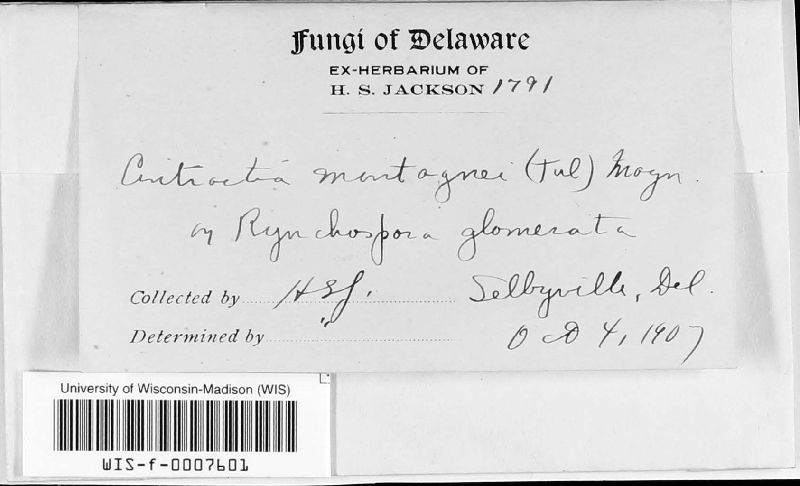 Fungi of Delaware
EX-HERBARIUM OF
H. S. JACKSON 1791
Cintractia montagnei (Tul) Magn.
on Rynchospora glomerata
Collected by HSJ. Selbyville, Del.
Determined by " Oct 4, 1907
University of Wisconsin-Madison (WIS)
WIS-f-0007601